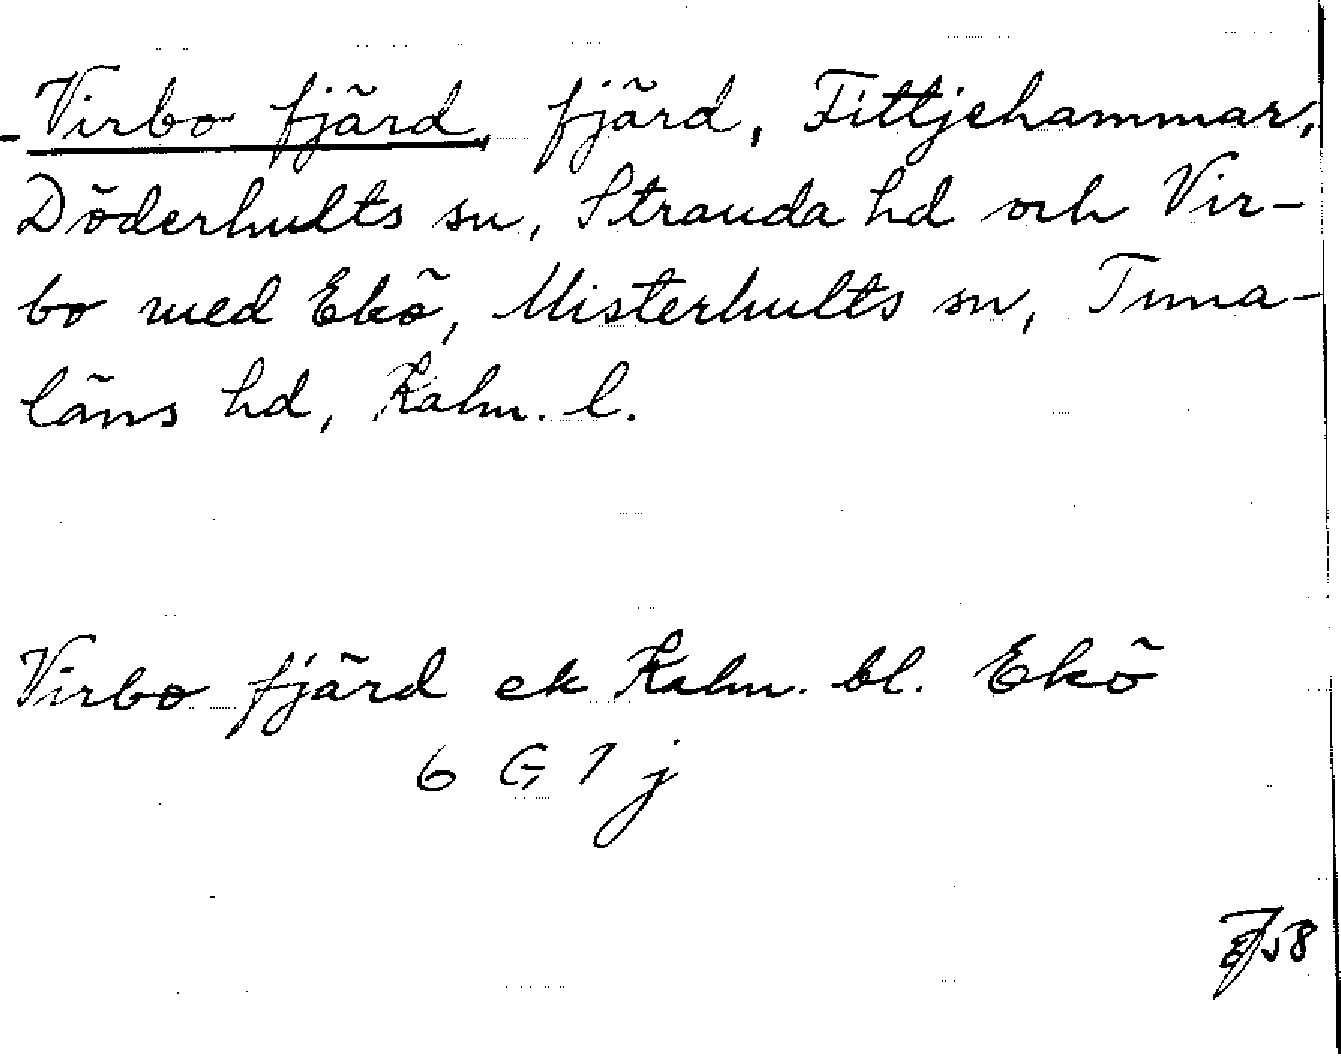 Virbo fjärd, fjärd, Fittjehammar,
Döderhults sn, Stranda hd och Vir-
bo med Ekö, Misterhults sn, Tuna-
läns hd, Kalm. l.
Virbo fjärd ek Kalm. bl. Ekö
6 G 7 j